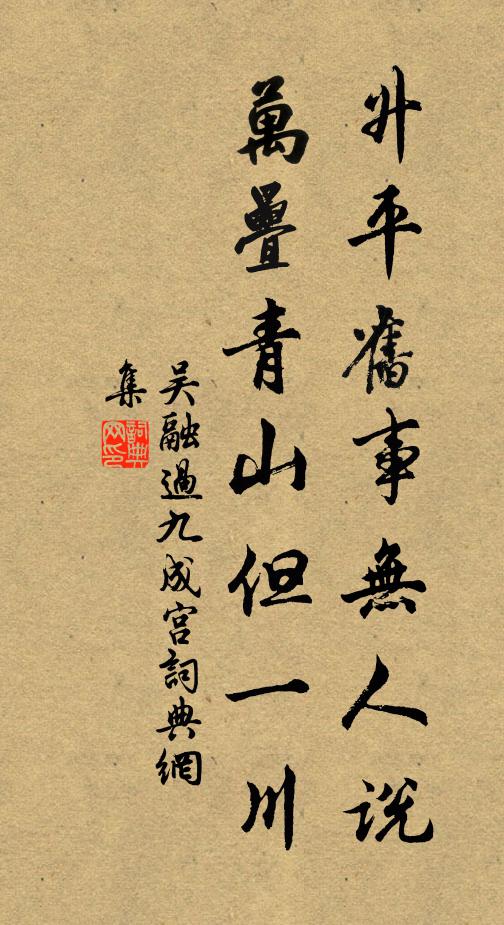 升平舊事無人説
萬疊青山但一川
吴融過九成宮詞典網
集
詞典
网印